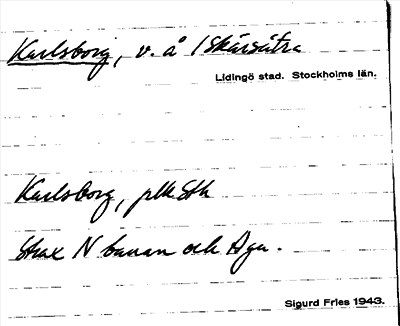 Karlsborg, v. å 1 Skärsätra
Lidingö stad. Stockholms län.
Karlsborg, plk Sth
Strax N banan och Aga.
Sigurd Fries 1943.